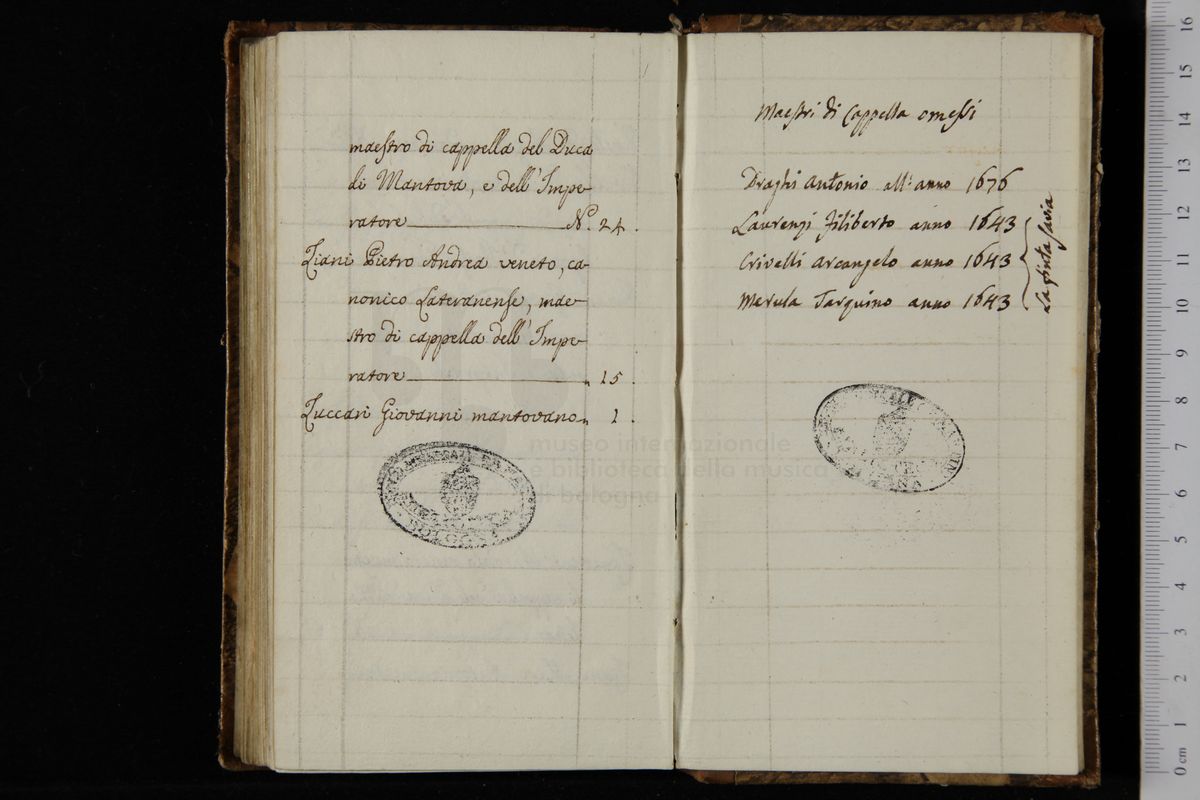 maestro di cappella del Duca
di Mantova, e dell'Impe-
ratore N.º 24.
Ziani Pietro Andrea veneto, ca-
nonico Lateranense, mae-
stro di cappella dell'Impe-
ratore „ 15.
Zuccari Giovanni mantovano „ 1.
BOLOGNA
Maestri di Cappella omessi
Draghi Antonio all'anno 1676
Laurenzi Filiberto anno 1643
Crivelli Arcangelo anno 1643
Merula Tarquino anno 1643
La finta savia
museo internazionale
e biblioteca della musica
di bologna
16
15
14
13
12
11
10
9
8
7
6
5
4
3
2
1
0 cm